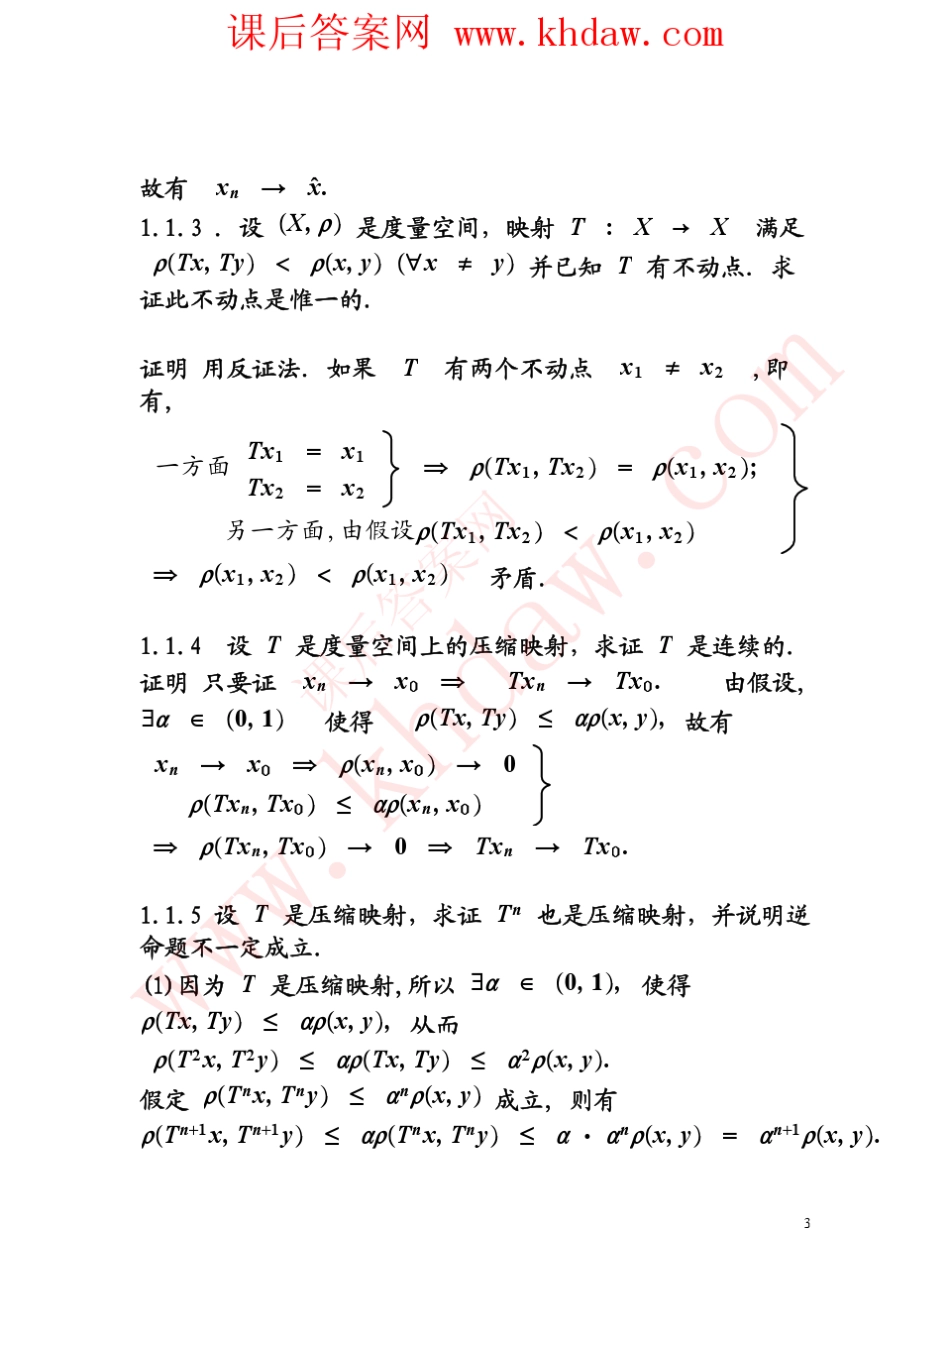 课后答案网 www.khdaw.com
故有 xₙ → x̂.
1.1.3 . 设 (X, ρ) 是度量空间，映射 T : X → X 满足
ρ(Tx, Ty) < ρ(x, y) (∀x ≠ y) 并已知 T 有不动点. 求
证此不动点是惟一的.
证明 用反证法. 如果 T 有两个不动点 x₁ ≠ x₂ ,即
有,
一方面 Tx₁ = x₁
Tx₂ = x₂ } ⇒ ρ(Tx₁, Tx₂) = ρ(x₁, x₂);
另一方面,由假设ρ(Tx₁, Tx₂) < ρ(x₁, x₂) }
⇒ ρ(x₁, x₂) < ρ(x₁, x₂) 矛盾.
1.1.4 设 T 是度量空间上的压缩映射，求证 T 是连续的.
证明 只要证 xₙ → x₀ ⇒ Txₙ → Tx₀. 由假设,
∃α ∈ (0, 1) 使得 ρ(Tx, Ty) ≤ αρ(x, y), 故有
xₙ → x₀ ⇒ ρ(xₙ, x₀) → 0
ρ(Txₙ, Tx₀) ≤ αρ(xₙ, x₀) }
⇒ ρ(Txₙ, Tx₀) → 0 ⇒ Txₙ → Tx₀.
1.1.5 设 T 是压缩映射，求证 Tⁿ 也是压缩映射，并说明逆
命题不一定成立.
(1)因为 T 是压缩映射,所以 ∃α ∈ (0, 1), 使得
ρ(Tx, Ty) ≤ αρ(x, y), 从而
ρ(T²x, T²y) ≤ αρ(Tx, Ty) ≤ α²ρ(x, y).
假定 ρ(Tⁿx, Tⁿy) ≤ αⁿρ(x, y) 成立, 则有
ρ(Tⁿ⁺¹x, Tⁿ⁺¹y) ≤ αρ(Tⁿx, Tⁿy) ≤ α · αⁿρ(x, y) = αⁿ⁺¹ρ(x, y).
3
课后答案网
www.khdaw.com